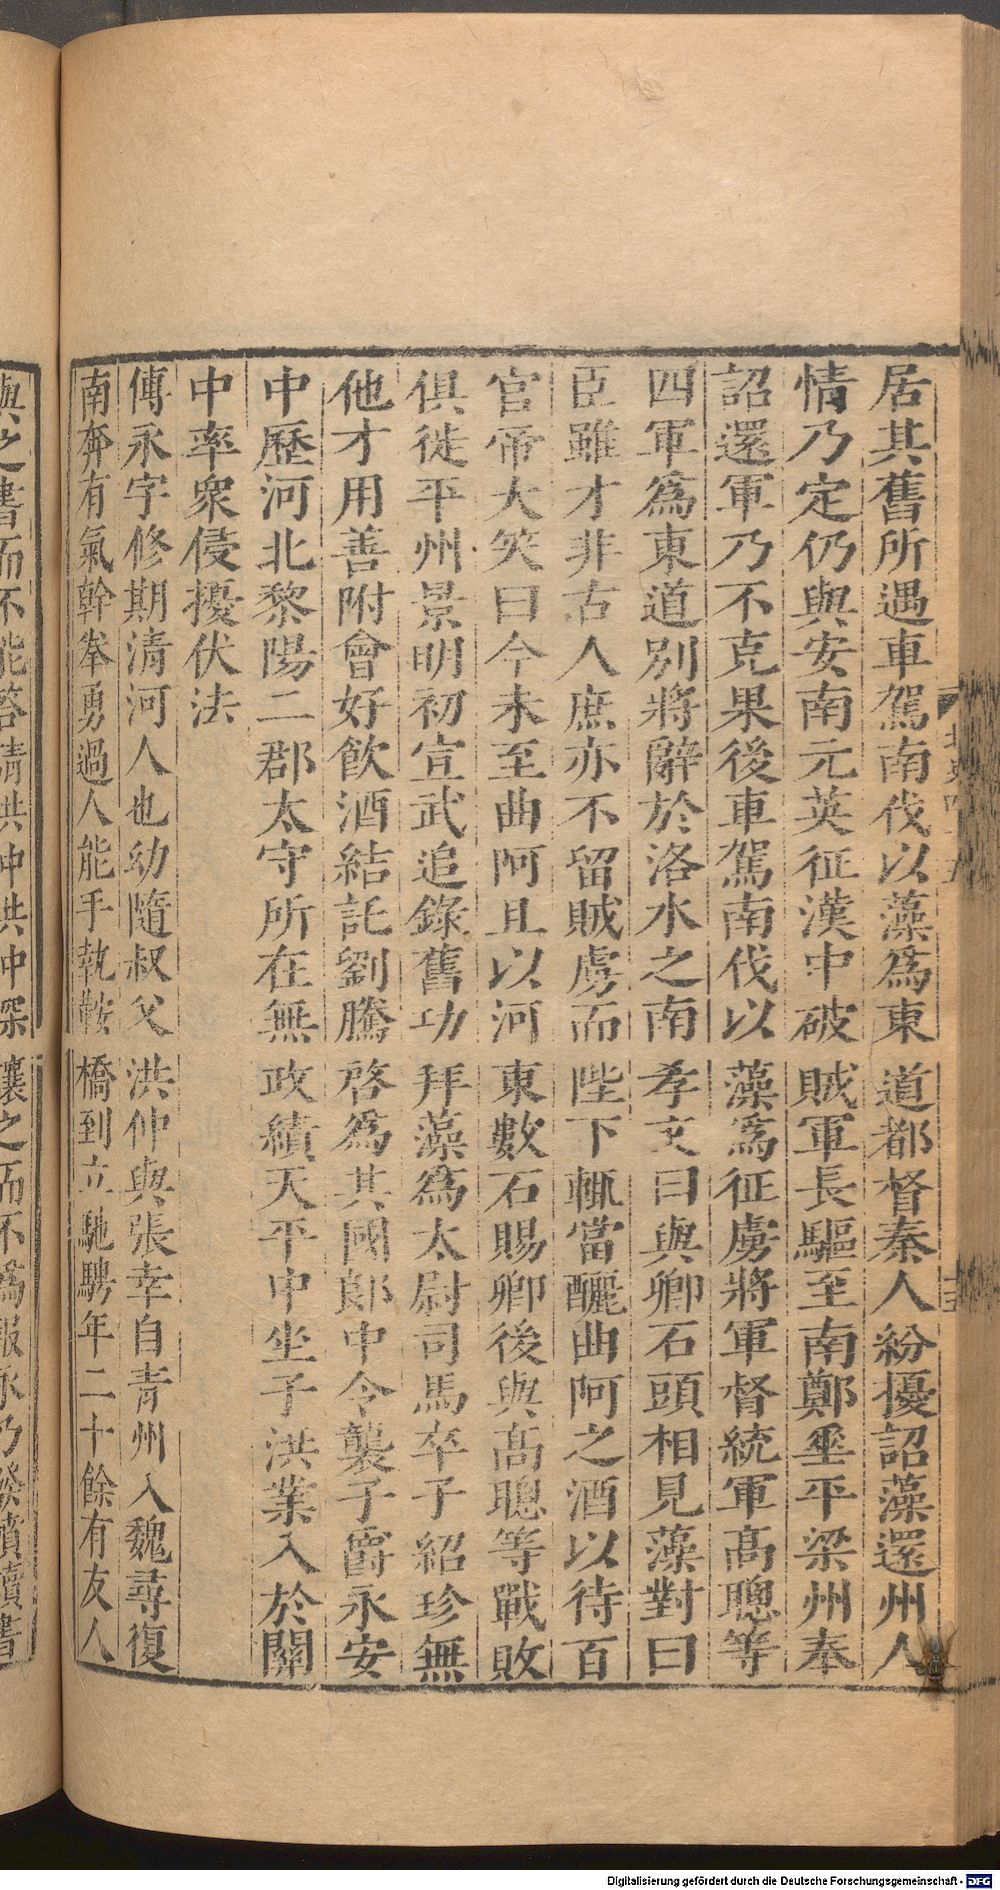 居其舊所遇車駕南伐以藻爲東道都督秦人紛擾詔藻還州人
情乃定仍與安南元英征漢中破賊軍長驅至南鄭垂平梁州奉
詔還軍乃不克果後車駕南伐以藻爲征虜將軍督統軍高聰等
四軍爲東道別將辭於洛水之南孝文曰與卿石頭相見藻對曰
臣雖才非古人庶亦不留賊虜而陛下輒當釃曲阿之酒以待百
官帝大笑曰今未至曲阿且以河東數石賜卿後與高聰等戰敗
俱徙平州景明初宣武追錄舊功拜藻爲太尉司馬卒子紹珍無
他才用善附會好飲酒結託劉騰啓爲其國郎中令襲子爵永安
中歷河北黎陽二郡太守所在無政績天平中坐子洪業入於關
中率衆侵擾伏法
傅永字修期清河人也幼隨叔父洪仲與張幸自青州入魏尋復
南奔有氣幹拳勇過人能手執鞍橋到立馳騁年二十餘有友人
與之書而不能荅請洪仲洪仲深讓之而不爲報永乃發憤讀書
Digitalisierung gefördert durch die Deutsche Forschungsgemeinschaft - DFG